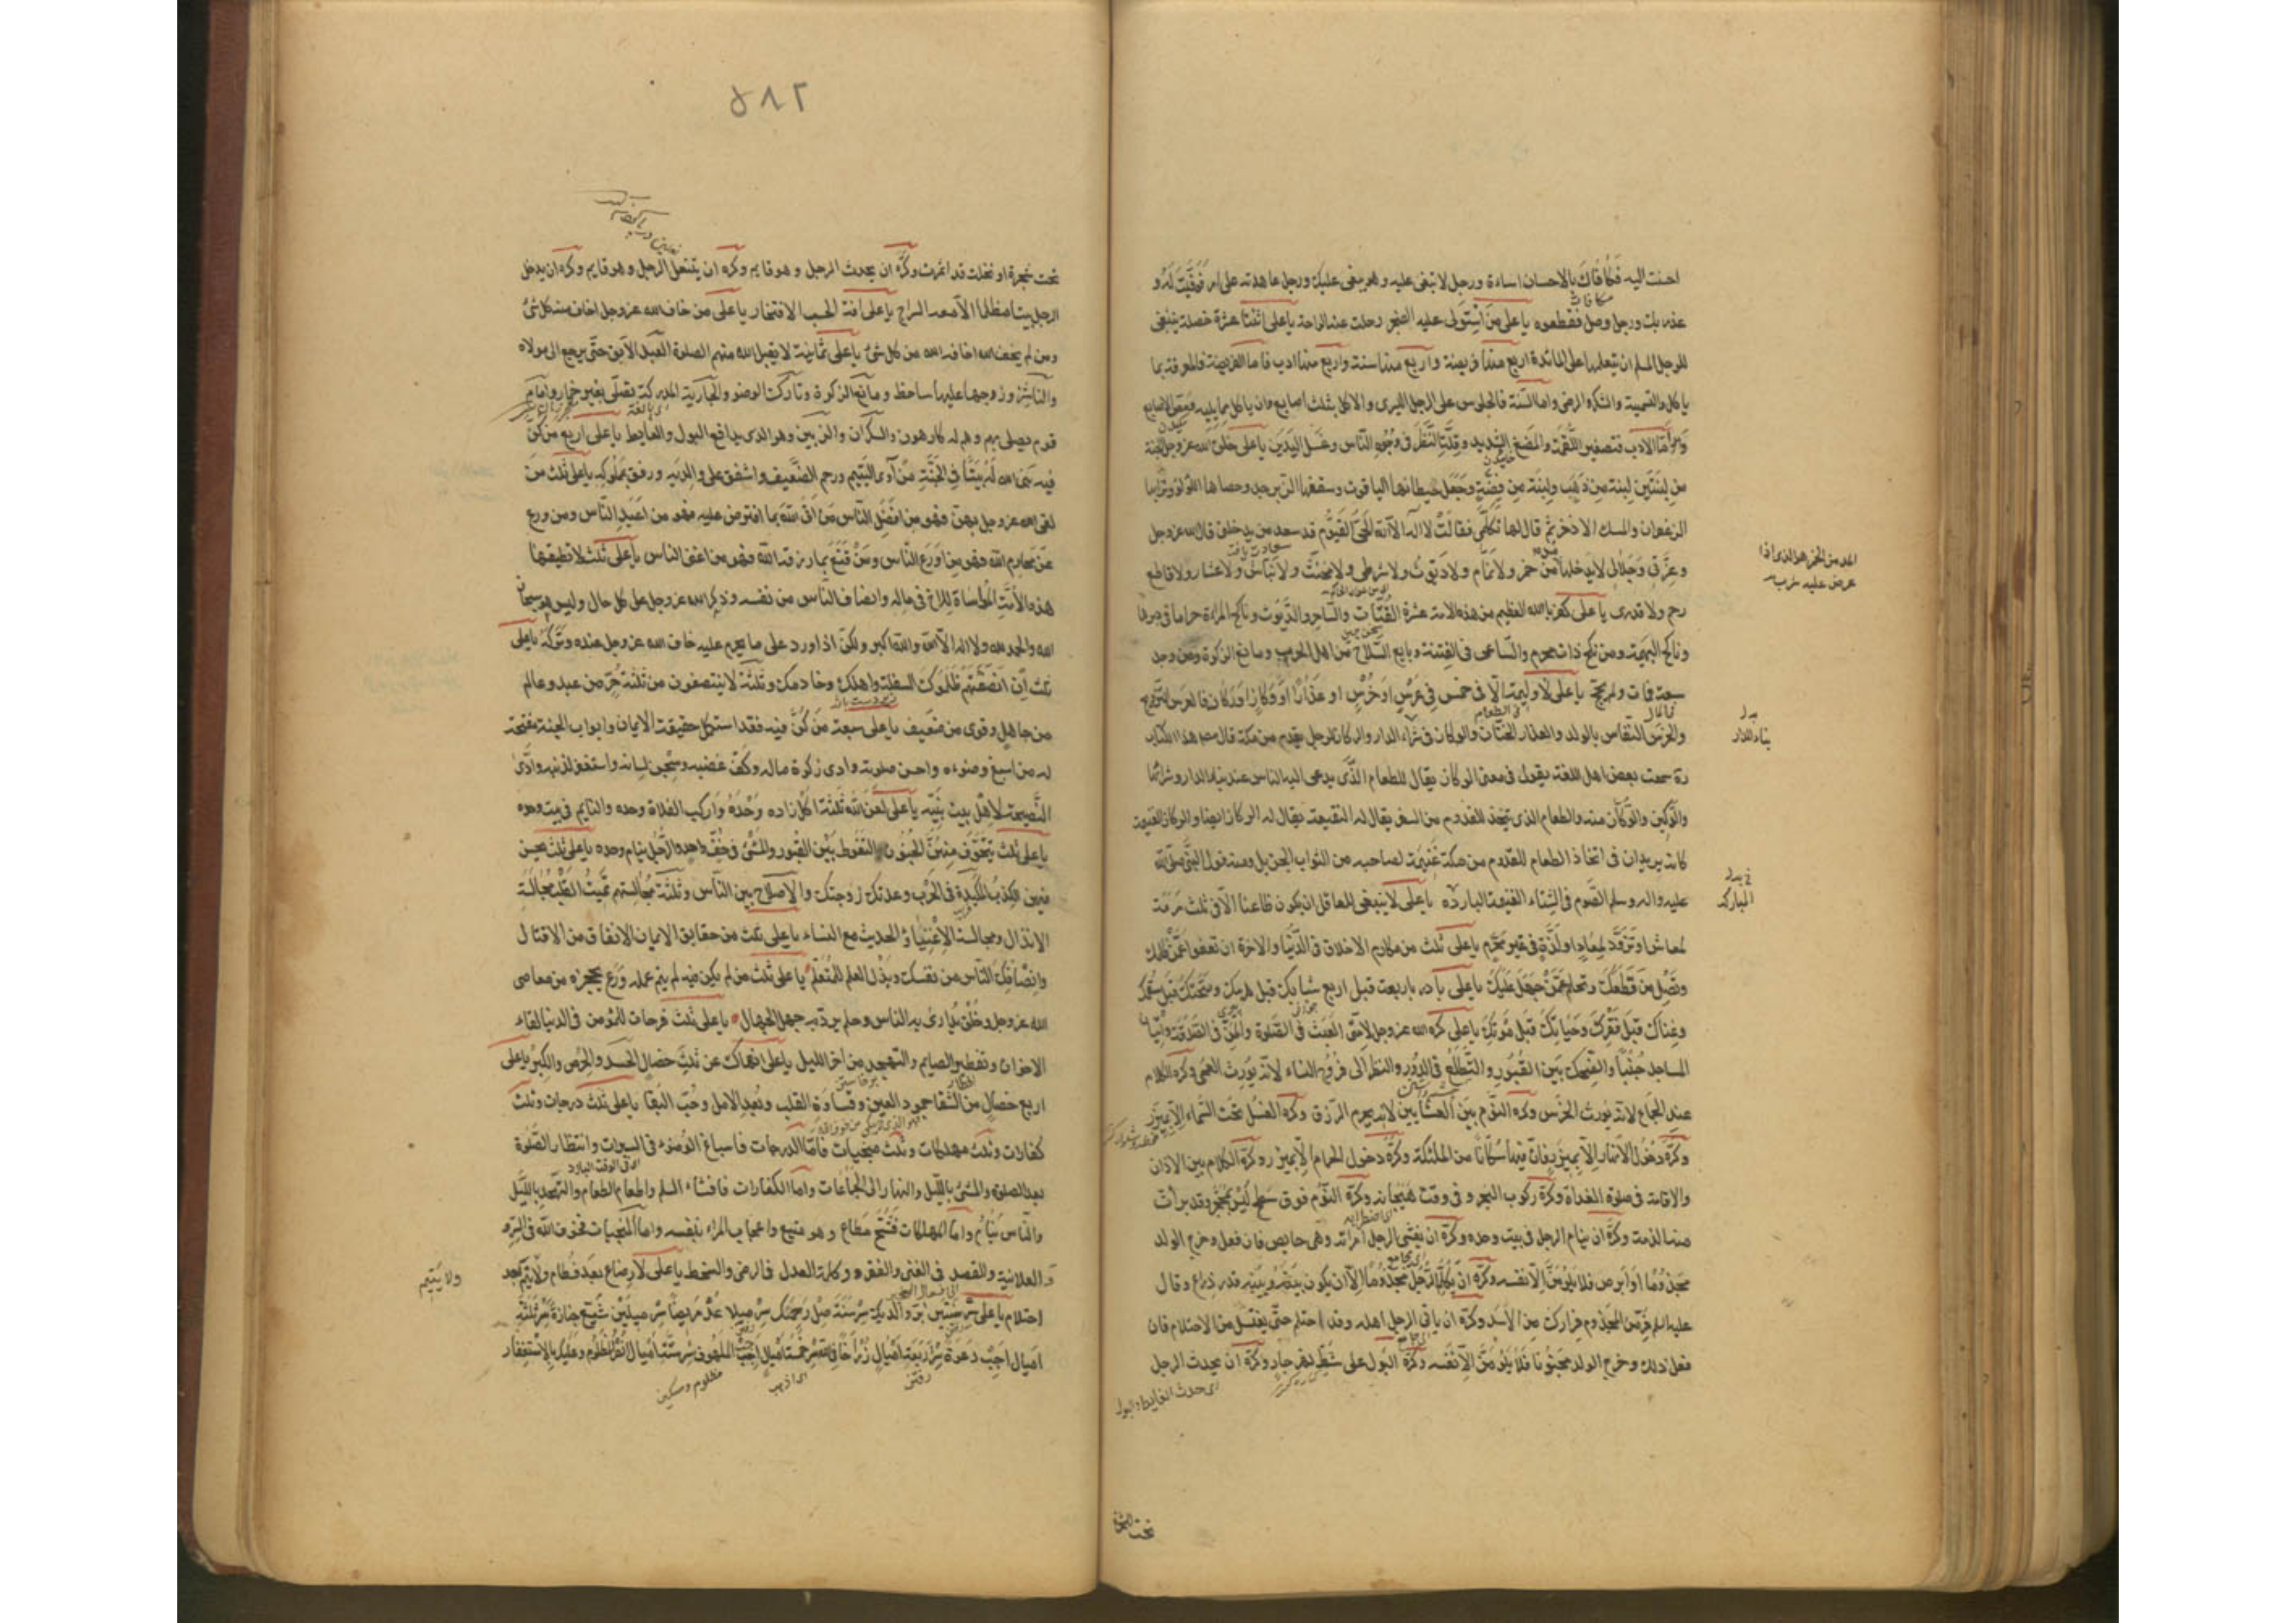 احسنت اليه فَكافاكَ بالاحسان اساءة ورجل لا تبغى عليه وهو يبغى عليك ورجل عاهدته على امر فَوَفَيْتَ لَهُ و
غدر بك ورجل وصل فقطعوه يا على مَن اسْتَولى عليه الضجر رحلت عنه الراحة يا على اثنتا عشرة خصلة ينبغى
للرجل المسلم ان يتعلمها على المائدة اربع منها فريضة واربع منها سنة واربع منها ادب فاما الفريضة فالمعرفة بما
ياكل والتسمية والشكر والرضى واما السنة فالجلوس على الرجل اليسرى والاكل بثلث اصابع وان ياكل مما يليه ومص الاصابع
وامّا الادب فتصغير اللّقمة والمضغ الشديد وقلّة النّظر فى وجوه النّاس وغسل اليدين يا على خلق الله عز وجل الجنة
من لبنتين لبنة من ذهب ولبنة من فضّة وجعل حيطانها الياقوت وسقفها الزّبرجد وحصاها اللؤلؤ وترابها
الزعفران والمسك الاذخر ثم قال لها تكلّمى فقالت لا اله الا الله الحىّ القيّوم قد سعد من يدخلنى قال الله عز وجل
وعزّتى وجلالى لا يدخلها مدمن خمر ولا نمّام ولا ديّوث ولا شرطى ولا مخنّث ولا نبّاش ولا عشار ولا قاطع
رحم ولا قدرى يا على كفر بالله العظيم من هذه الامة عشرة القتّات والساحر والدّيّوث وناكح المراة حراما فى دبرها
وناكح البهيمة ومن نكح ذات محرم والسّاعى فى الفتنة وبايع السّلاح من اهل الحرب ومانع الزكوة ومن وجد
سعة فمات ولم يحجّ يا على لا وليمة الّا فى خمس فى عرس او خرس او عذار او وكار او ركاز فالعرس التزويج
والخرس النّفاس بالولد والعذار الختان والوكار فى شراء الدار والركاز الرجل يقدم من مكة قال مصنف هذا الكتاب
رة سمعت بعض اهل اللغة يقول فى معنى الوكار يقال للطعام الّذى يدعى اليه الناس عند بناء الدار وشرائها
والوكيرة والوكار منه والطعام الذى يتخذ للقدوم من السفر يقال له النقيعة ويقال له الركاز ايضا والركاز الغنيمة
كانه يريد ان فى اتخاذ الطعام للقدوم من مكة غنيمة لصاحبه من الثواب الجزيل ومنه قول النبى صلّى الله
عليه واله وسلم الصّوم فى الشتاء الغنيمة الباردة يا على لا ينبغى للعاقل ان يكون ظاعنا الّا فى ثلث مرمة
لمعاش او تزوّد لمعاد او لذّة فى غير محرّم يا على ثلث من مكارم الاخلاق فى الدّنيا والاخرة ان تعفو عمّن ظلمك
وتصل من قطعك وتحلم عمّن جهل عليك يا على بادر باربعة قبل اربع شبابك قبل هرمك وصحّتك قبل سقمك
وغناك قبل فقرك وحياتك قبل موتك يا على كره الله عز وجل لامّتى العبث فى الصّلوة والمنّ فى الصّدقة واتيان
المساجد جنبًا والضّحك بين القبور والتّطلّع فى الدّور والنظر الى فروج النساء لانه يورث العمى وكره الكلام
عند الجماع لانه يورث الخرس وكره النّوم بين العشائين لانه يحرم الرّزق وكره الغسل تحت السّماء الّا بميزر
وكره دخول الانهار الّا بميزر فانّ فيها سكّانًا من الملئكة وكره دخول الحمام الّا بميزر وكره الكلام بين الاذان
والاقامة فى صلوة الغداة وكره ركوب البحر فى وقت هيجانه وكره النّوم فوق سطح ليس بمحجّر وقد برأت
منه الذمة وكره ان ينام الرجل فى بيت وحده وكره ان يغشى الرجل امراته وهى حايض فان فعل وخرج الولد
مجذومًا او ابرص فلا يلومنّ الّا نفسه وكره ان يكلّم الرّجل مجذومًا الّا ان يكون بينه وبينه قدر ذراع وقال
عليه السلم فرّ من المجذوم فرارك من الاسد وكره ان ياتى الرجل اهله وقد احتلم حتّى يغتسل من الاحتلام فان
فعل ذلك وخرج الولد مجنونا فلا يلومنّ الّا نفسه وكره البول على شطّ نهر جار وكره ان يحدث الرجل
المدمن الخمر هو الذى اذا
عرض عليه شرب
بدل
بناء الدار
المباركة
اى حدث الغايط والبول
٥٨٢
تحت شجرة او نخلة قد اثمرت وكره ان يحدث الرجل وهو قايم وكره ان يتنعل الرجل وهو قايم وكره ان يدخل
الرجل بيتا مظلما الّا مع السراج يا على افة الحسب الافتخار يا على من خاف الله عز وجل اخاف منه كل شئ
ومن لم يخف الله اخافه الله من كل شئ يا على ثمانية لا يقبل الله منهم الصلوة العبد الآبق حتّى يرجع الى مولاه
والناشز وزوجها عليها ساخط ومانع الزكوة وتارك الوضو والجارية المدركة تصلّى بغير خمار وامام
قوم يصلى بهم وهم له كارهون والسكران والزبين وهو الذى يدافع البول والغايط يا على اربع من كن
فيه بنى الله له بيتًا فى الجنّة من آوى اليتيم ورحم الضّعيف واشفق على والديه ورفق بمملوكه يا على ثلث من
لقى الله عز وجل بهن فهو من افضل النّاس من اتى الله بما افترض عليه فهو من اعبد النّاس ومن ورع
عن محارم الله فهو من اورع النّاس ومن قنع بما رزقه الله فهو من اغنى الناس يا على ثلث لا تطيقها
هذه الامّة المواساة للاخ فى ماله وانصاف النّاس من نفسه وذكر الله عز وجل على كل حال وليس هو سبحان
الله والحمد لله ولا اله الا الله والله اكبر ولكن اذا ورد على ما يحرم عليه خاف الله عز وجل عنده وتركه يا على
ثلثة ان انصفتهم ظلموك السفلة واهلك وخادمك وثلثة لا ينتصفون من ثلثة حرّ من عبد وعالم
من جاهل وقوى من ضعيف يا على سبعة من كنّ فيه فقد استكمل حقيقة الايمان وابواب الجنة مفتحة
له من اسبغ وضوءه واحسن صلوته وادى زكوة ماله وكفّ غضبه وسجن لسانه واستغفر لذنبه وادّى
النّصيحة لاهل بيت نبيّه يا على لعن الله ثلثة اكل زاده وحده وراكب الفلاة وحده والنايم فى بيت وحده
يا على ثلث يتخوّف منهنّ الجنون التغوط بين القبور والمشى فى خفّ واحد والرّجل ينام وحده يا على ثلث يحسن
فيهن الكذب المكيدة فى الحرب وعدتك زوجتك والاصلاح بين النّاس وثلثة مجالستهم تميت القلب مجالسة
الانذال ومجالسة الاغنياء والحديث مع النساء يا على ثلث من حقايق الايمان الانفاق من الاقتار
وانصافك النّاس من نفسك وبذل العلم للمتعلّم يا على ثلث من لم يكن فيه لم يتم عمله ورع يحجزه من معاصى
الله عز وجل وخلق يدارى به الناس وحلم يردّ به جهل الجهال يا على ثلث فرحات للمؤمن فى الدنيا لقاء
الاخوان وتفطير الصايم والتهجد من اخر الليل يا على انهاك عن ثلث خصال الحسد والحرص والكبر يا على
اربع خصال من الشّقا جمود العين وقساوة القلب وبعد الامل وحبّ البقا يا على ثلث درجات وثلث
كفارات وثلث مهلكات وثلث منجيات فامّا الدرجات فاسباغ الوضوء فى السبرات وانتظار الصّلوة
بعد الصلوة والمشى بالليل والنهار الى الجماعات واما الكفارات فافشاء السلم واطعام الطعام والتهجد بالليل
والنّاس نيام واما المهلكات فشحّ مطاع وهوى متبع واعجاب المراء بنفسه واما المنجيات فخوف الله فى السّر
و العلانية والقصد فى الغنى والفقر وكلمة العدل فى الرضى والسخط يا على لا رضاع بعد فطام ولا يتم بعد
احتلام يا على سر سنتين برّ والديك سر سنة صل رحمك سر ميلا عد مريضا سر ميلين شيّع جنازة سر ثلثة
اميال اجب دعوة سر اربعة اميال زر اخا فى الله سر خمسة اميال اجب الملهوف سر ستّة اميال انصر المظلوم وعليك بالاستغفار
ولا يتيم
رفتن
اى اذهب
مظلوم ومسكين